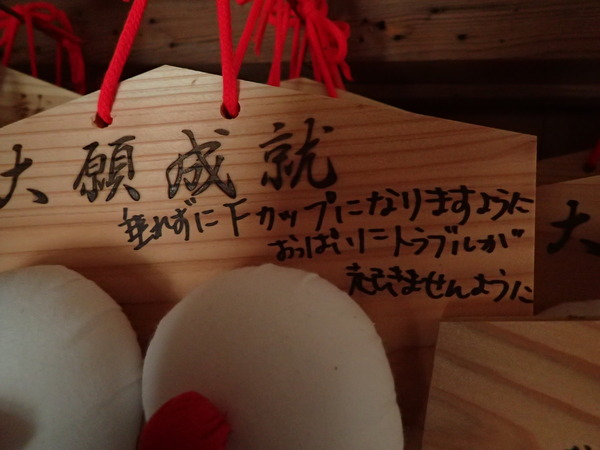 大願成就
垂れずにFカップになりますように
おっぱいにトラブルが
起きませんように
大